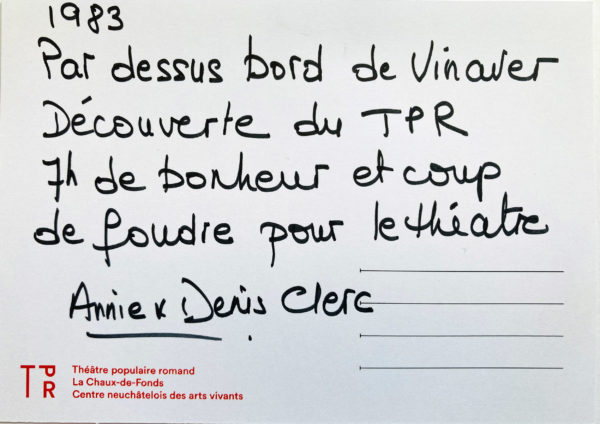 1983
Par dessus bord de Vinaver
Découverte du TPR
7h de bonheur et coup
de foudre pour le théâtre
Annie & Denis Clerc
TPR
Théâtre populaire romand
La Chaux-de-Fonds
Centre neuchâtelois des arts vivants